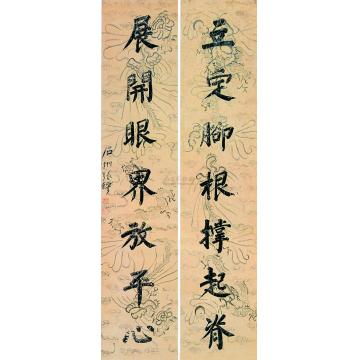 立定腳根撐起脊
展開眼界放平心